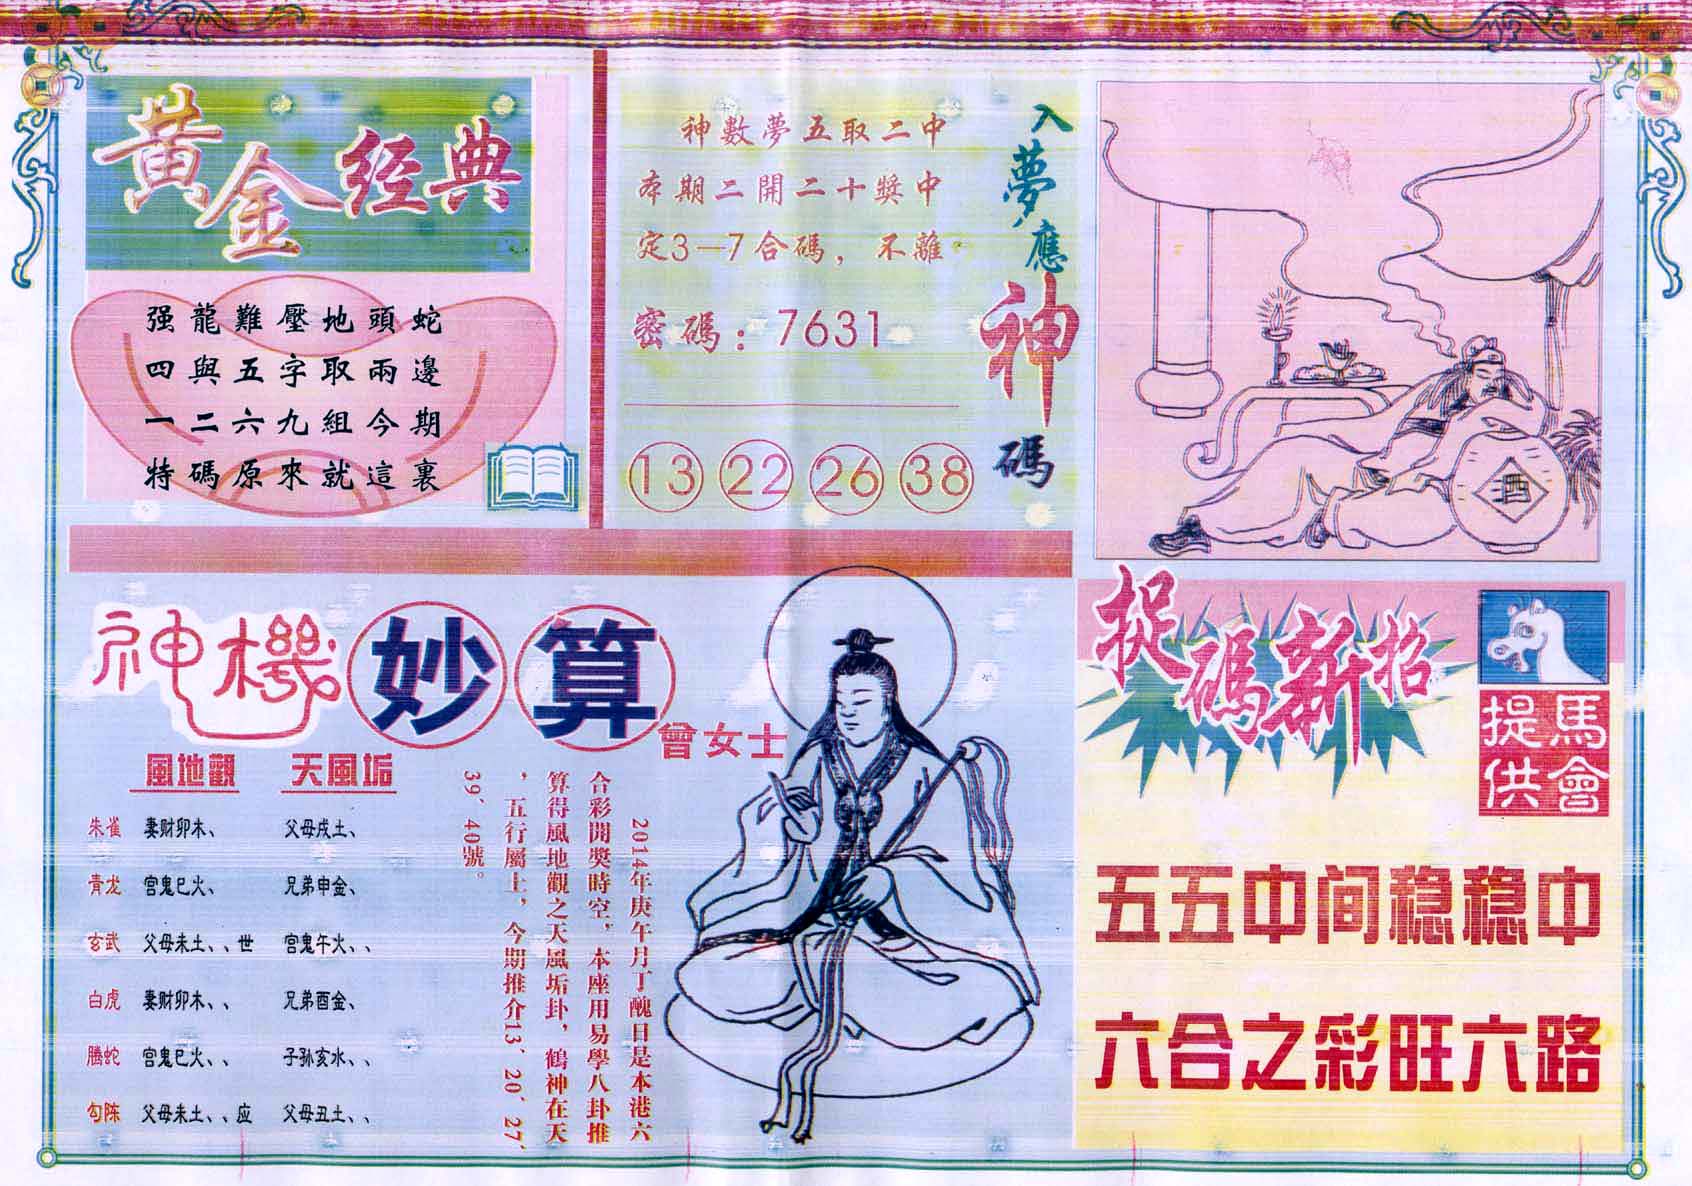 黄金经典
强龍難壓地頭蛇
四與五字取兩邊
一二六九組今期
特碼原來就這裏
入夢應神碼
神數夢五取二中
本期二開二十獎中
定3—7合碼，不離
密碼：7631
13 22 26 38
酒
神機妙算
曾女士
風地觀 天風垢
朱雀 妻财卯木、 父母戌土、
青龙 官鬼巳火、 兄弟申金、
玄武 父母未土、、世 官鬼午火、、
白虎 妻财卯木、、 兄弟酉金、
腾蛇 官鬼巳火、、 子孙亥水、、
勾陈 父母未土、、应 父母丑土、、
2014年庚午月丁醜日是本港六
合彩開獎時空，本座用易學八卦推
算得風地觀之天風垢卦，鶴神在天
，五行屬土，今期推介13、20、27、
39、40號。
捉碼新招
馬會提供
五五中间稳稳中
六合之彩旺六路